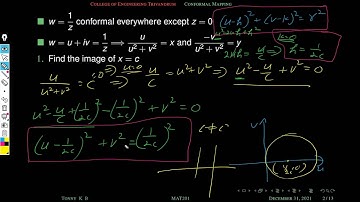 COLLEGE OF ENGINEERING TRIVANDRUM CONFORMAL MAPPING
w = 1/z conformal everywhere except z = 0
(u-h)² + (v-k)² = r²
w = u + iv = 1/z ⟹ u/(u² + v²) = x and -v/(u² + v²) = y
1. Find the image of x = c
u/(u²+v²) = c ⟹ u/c = u²+v² ⟹ u² - u/c + v² = 0
h = 1/2c
u² - u/c + (1/2c)² - (1/2c)² + v² = 0
(u - 1/2c)² + v² = (1/2c)²
v
u
TONNY K B MAT201 DECEMBER 31, 2021 2/13